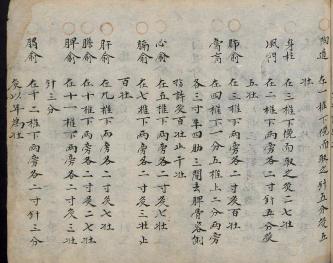 陶道 在一椎下俛而取之針五分灸五
壯
身柱 在三椎下俛而取之灸二七壯
風門 在二椎下兩旁各二寸針五分灸
五壯
肺俞 在三椎下兩旁各二寸灸百壯
膏肓 在四椎下一分五椎上二分兩旁
各三寸半四肋三間去胛骨容側
指許灸百壯止千壯
心俞 在五椎下兩旁各二寸灸
膈俞 在七椎下兩旁各二寸灸三壯止
百壯
肝俞 在九椎下兩旁各二寸灸三壯
膽俞 在十椎下兩旁各二寸灸二七壯
脾俞 在十一椎下兩旁各二寸灸三壯
針三分
胃俞 在十二椎下兩旁各二寸針三分
灸以年為壯